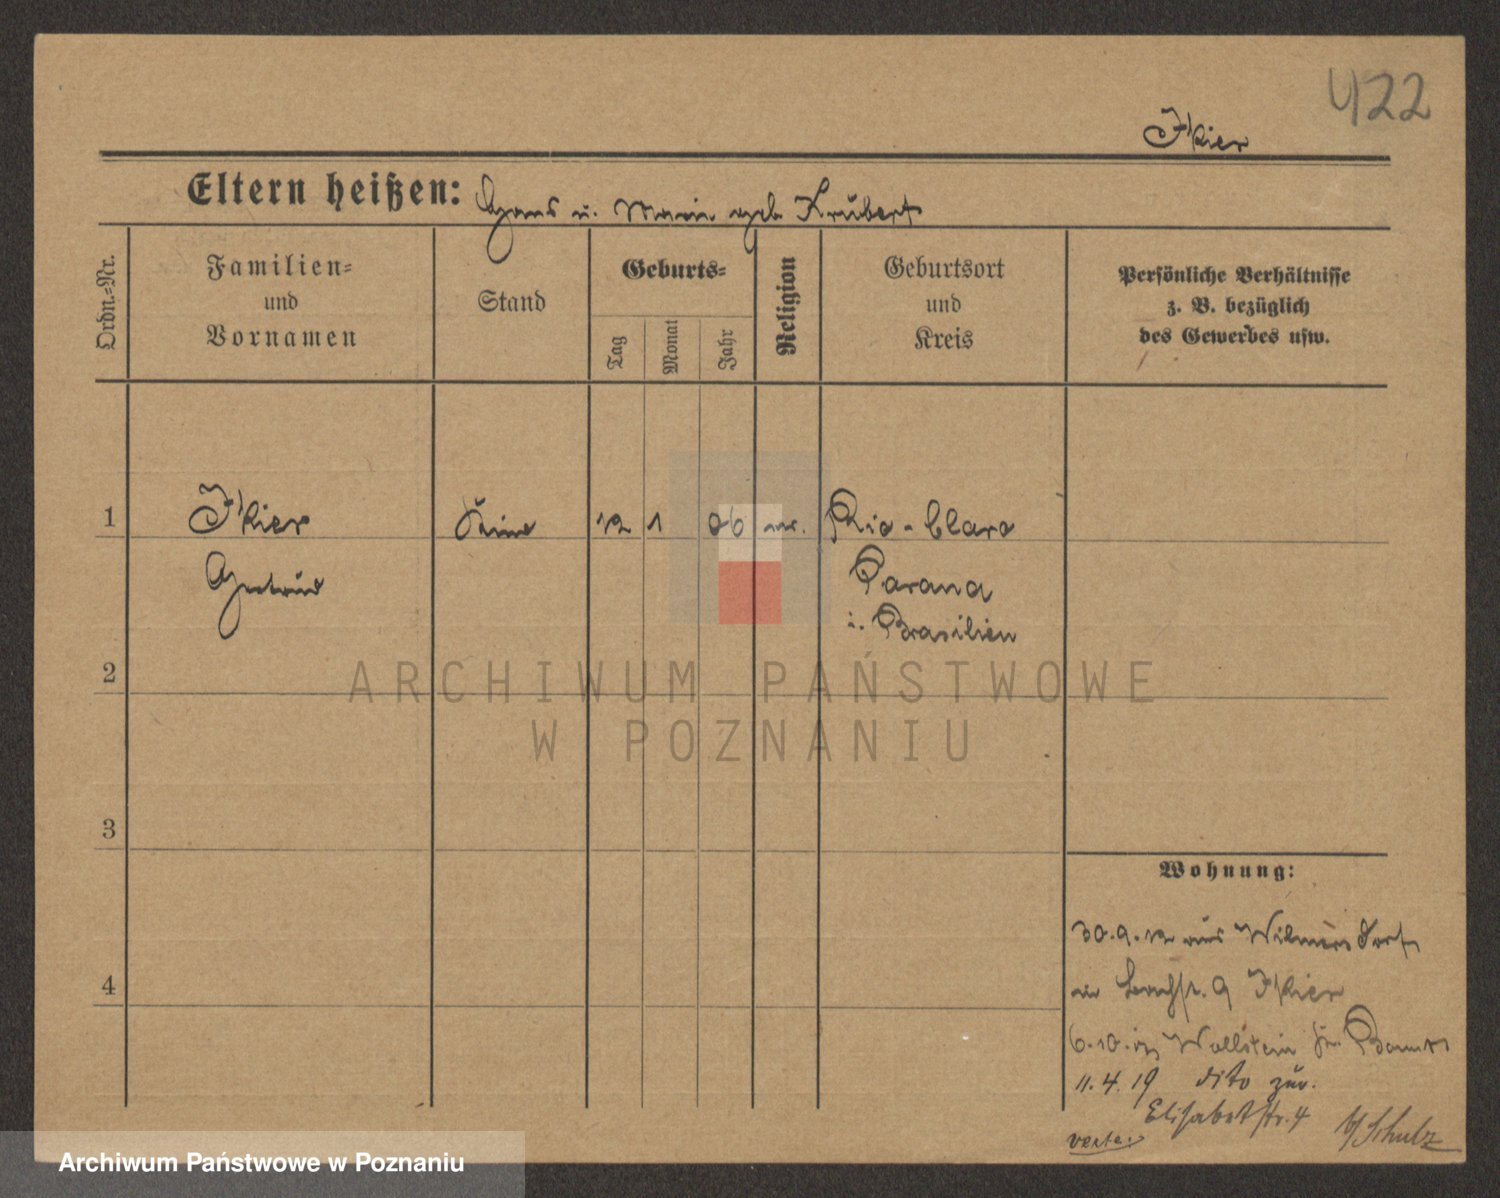 422
Ikier
Eltern heißen: Hans u. Marie geb Krubert
Ordn.=Nr.
Familien=
und
Vornamen
Stand
Geburts=
Tag
Monat
Jahr
Religion
Geburtsort
und
Kreis
Persönliche Verhältnisse
z. B. bezüglich
des Gewerbes usw.
1 Ikier 12 1 06 Rio - Claro
Gertrud Parana
i. Brasilien
2
3
4
Wohnung:
30.9.12 aus Wilmersdorf
9 Ikier
6.10. Wollstein
11.4.19 dito zur.
Elisabetstr. 4
b/Schulz
verte
ARCHIWUM PAŃSTWOWE
W POZNANIU
Archiwum Państwowe w Poznaniu